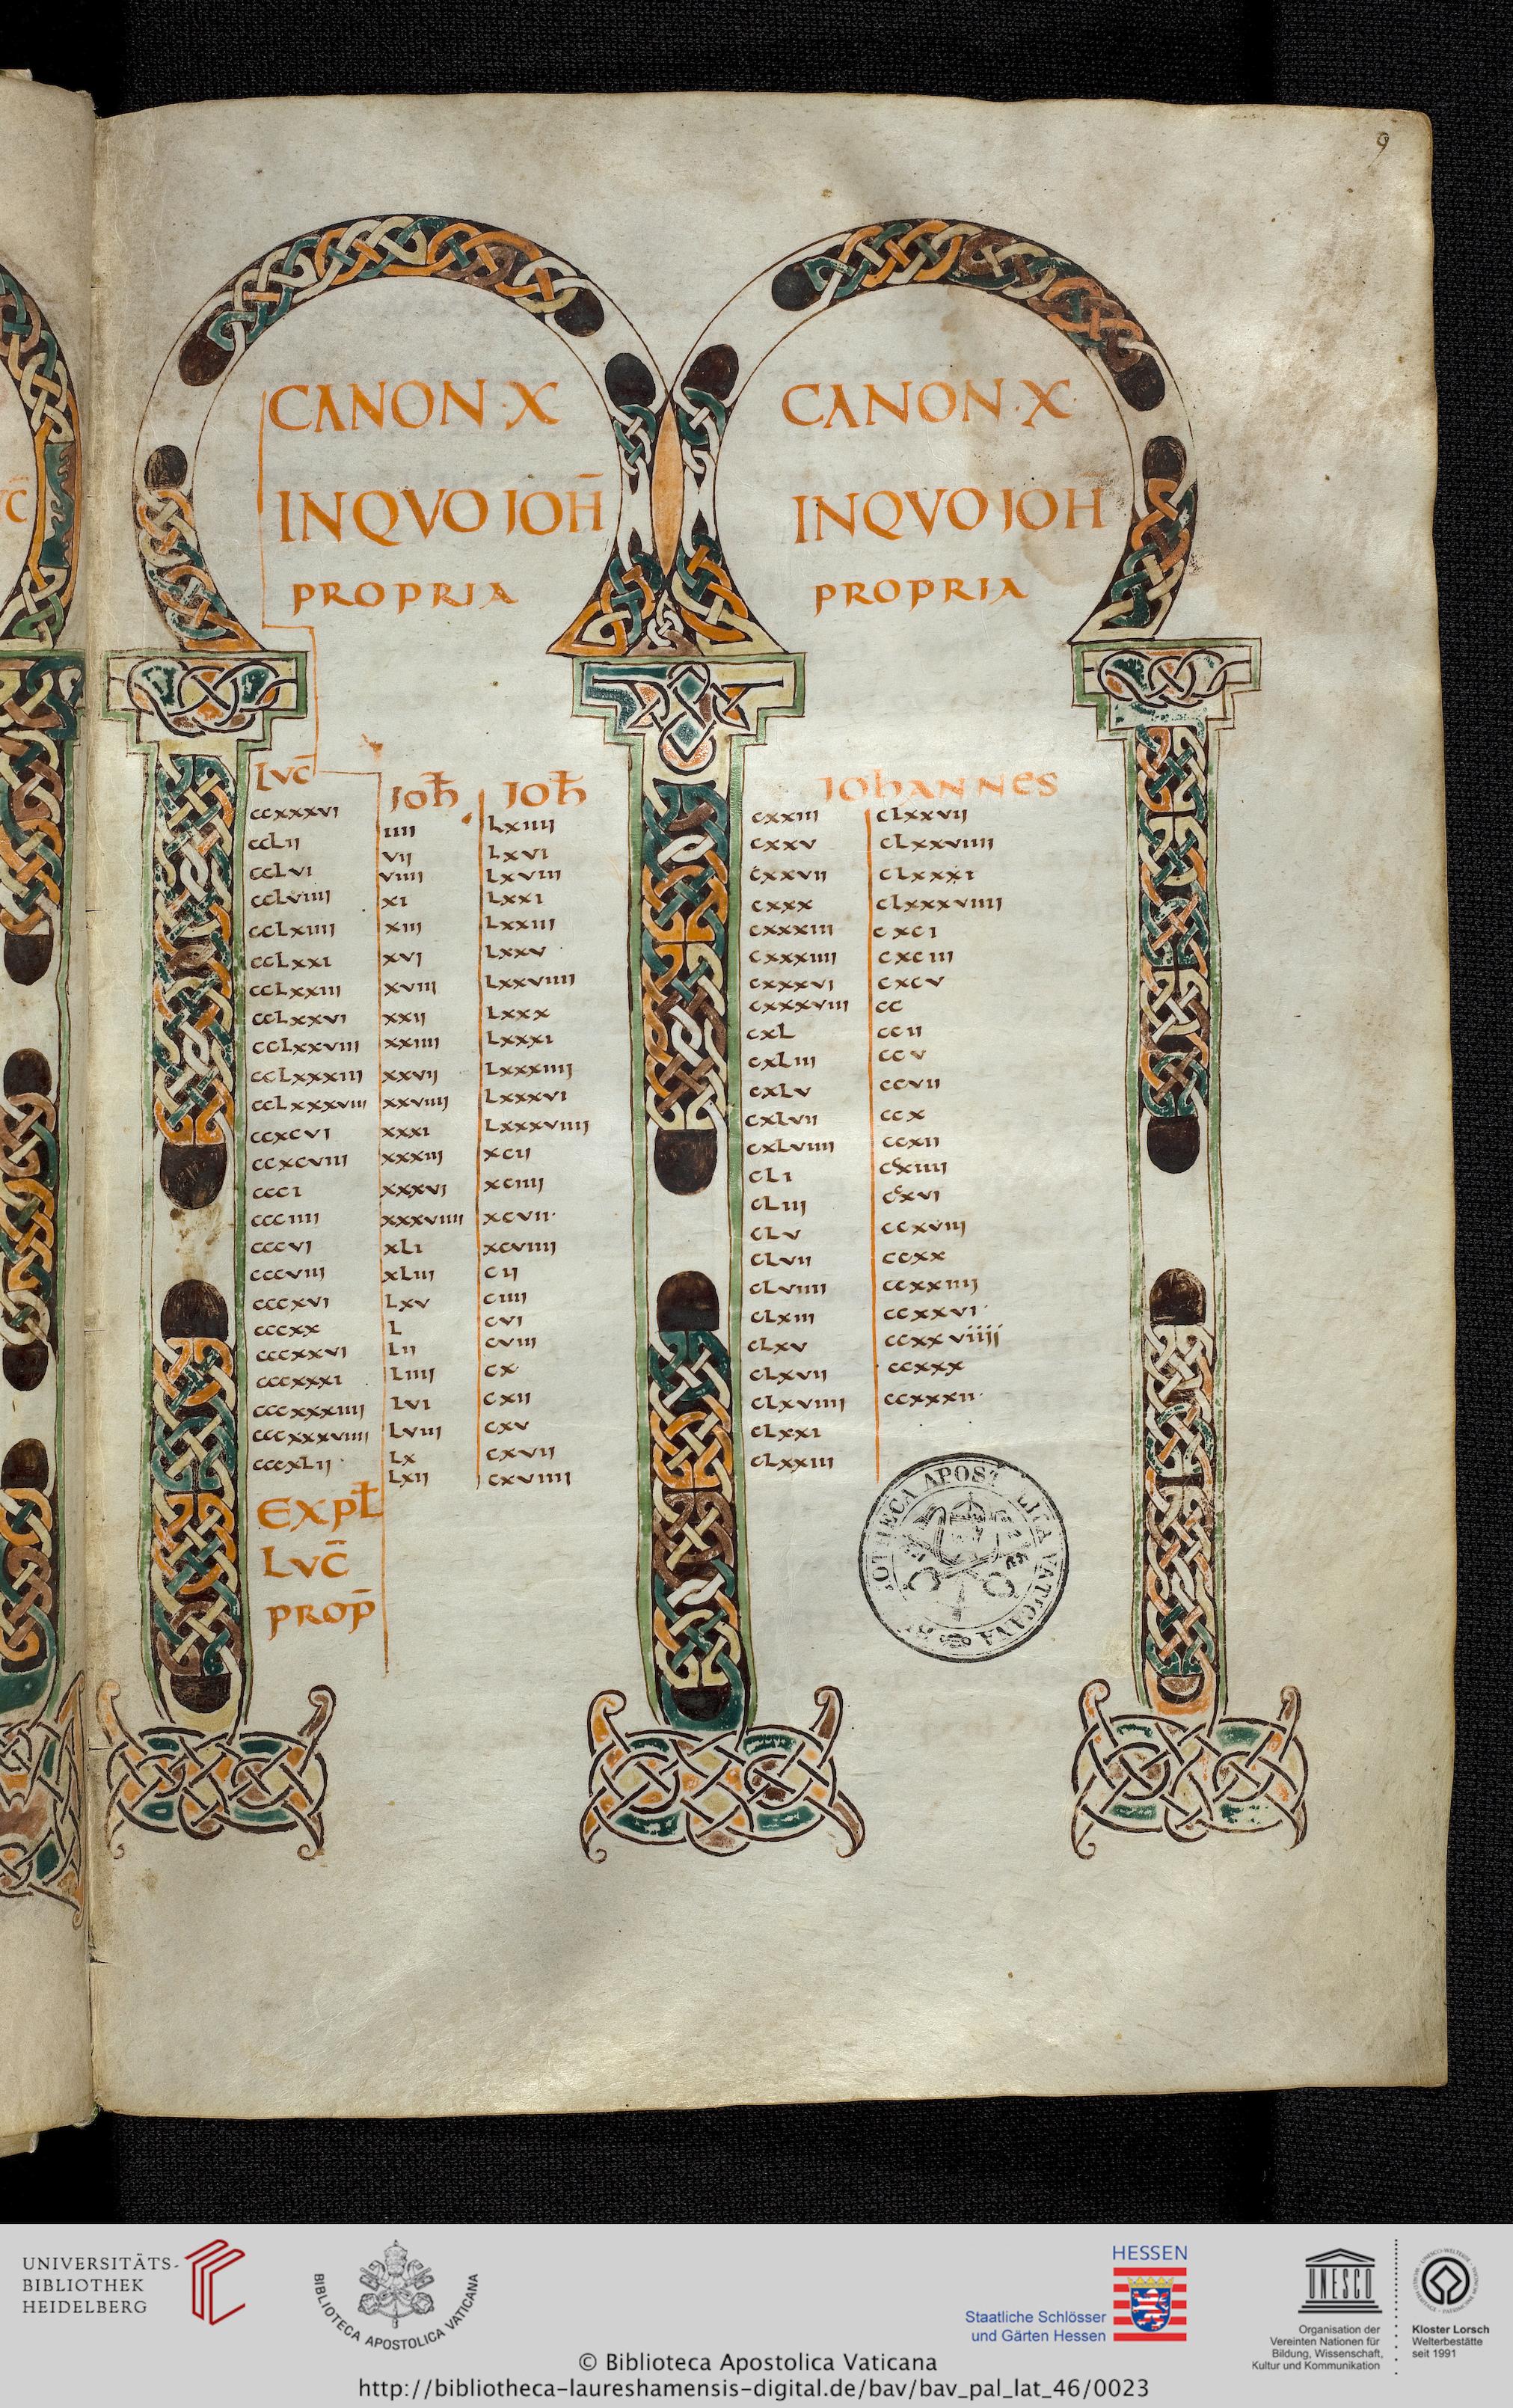 9
CANON·X
INQVO IOH̄
PROPRIA
LVC̄
ccxxxvi
cclii
cclvi
cclviiii
cclxiiii
cclxxi
cclxxiii
cclxxvi
cclxxviii
cclxxxiii
cclxxxviii
ccxcvi
ccxcviii
ccci
ccciiii
cccvi
cccviii
cccxvi
cccxx
cccxxvi
cccxxxi
cccxxxiiii
cccxxxviiii
cccxlii
EXPL̄
LVC̄
PROP̄
IOH̄
iiii
vii
viiii
xi
xiii
xvi
xviii
xxii
xxiiii
xxvii
xxviiii
xxxi
xxxiii
xxxvi
xxxviiii
xli
xliii
lxv
l
lii
liiii
lvi
lviii
lx
lxii
IOH̄
lxiiii
lxvi
lxviii
lxxi
lxxiii
lxxv
lxxviiii
lxxx
lxxxi
lxxxiiii
lxxxvi
lxxxviiii
xcii
xciiii
xcvii·
xcviiii
cii
ciiii
cvi
cviii
cx
cxii
cxv
cxvii
cxviiii
CANON·X·
INQVO IOH̄
PROPRIA
IOHANNES
cxxiii
cxxv
cxxvii
cxxx
cxxxiii
cxxxiiii
cxxxvi
cxxxviii
cxl
cxliii
cxlv
cxlvii
cxlviiii
cli
cliii
clv
clvii
clviiii
clxiii
clxv
clxvii
clxviiii
clxxi
clxxiii
clxxvii
clxxviiii
clxxxi
clxxxviiii
cxci
cxciii
cxcv
cc
ccii
ccv
ccvii
ccx
ccxii
ccxiiii
ccxvi
ccxviii
ccxx
ccxxiiii
ccxxvi·
ccxxviiii
ccxxx
ccxxxii·
UNIVERSITÄTS-
BIBLIOTHEK
HEIDELBERG
BIBLIOTECA APOSTOLICA VATICANA
HESSEN
Staatliche Schlösser
und Gärten Hessen
UNESCO
Organisation der
Vereinten Nationen für
Bildung, Wissenschaft,
Kultur und Kommunikation
Kloster Lorsch
Welterbestätte
seit 1991
© Biblioteca Apostolica Vaticana
http://bibliotheca-laureshamensis-digital.de/bav/bav_pal_lat_46/0023